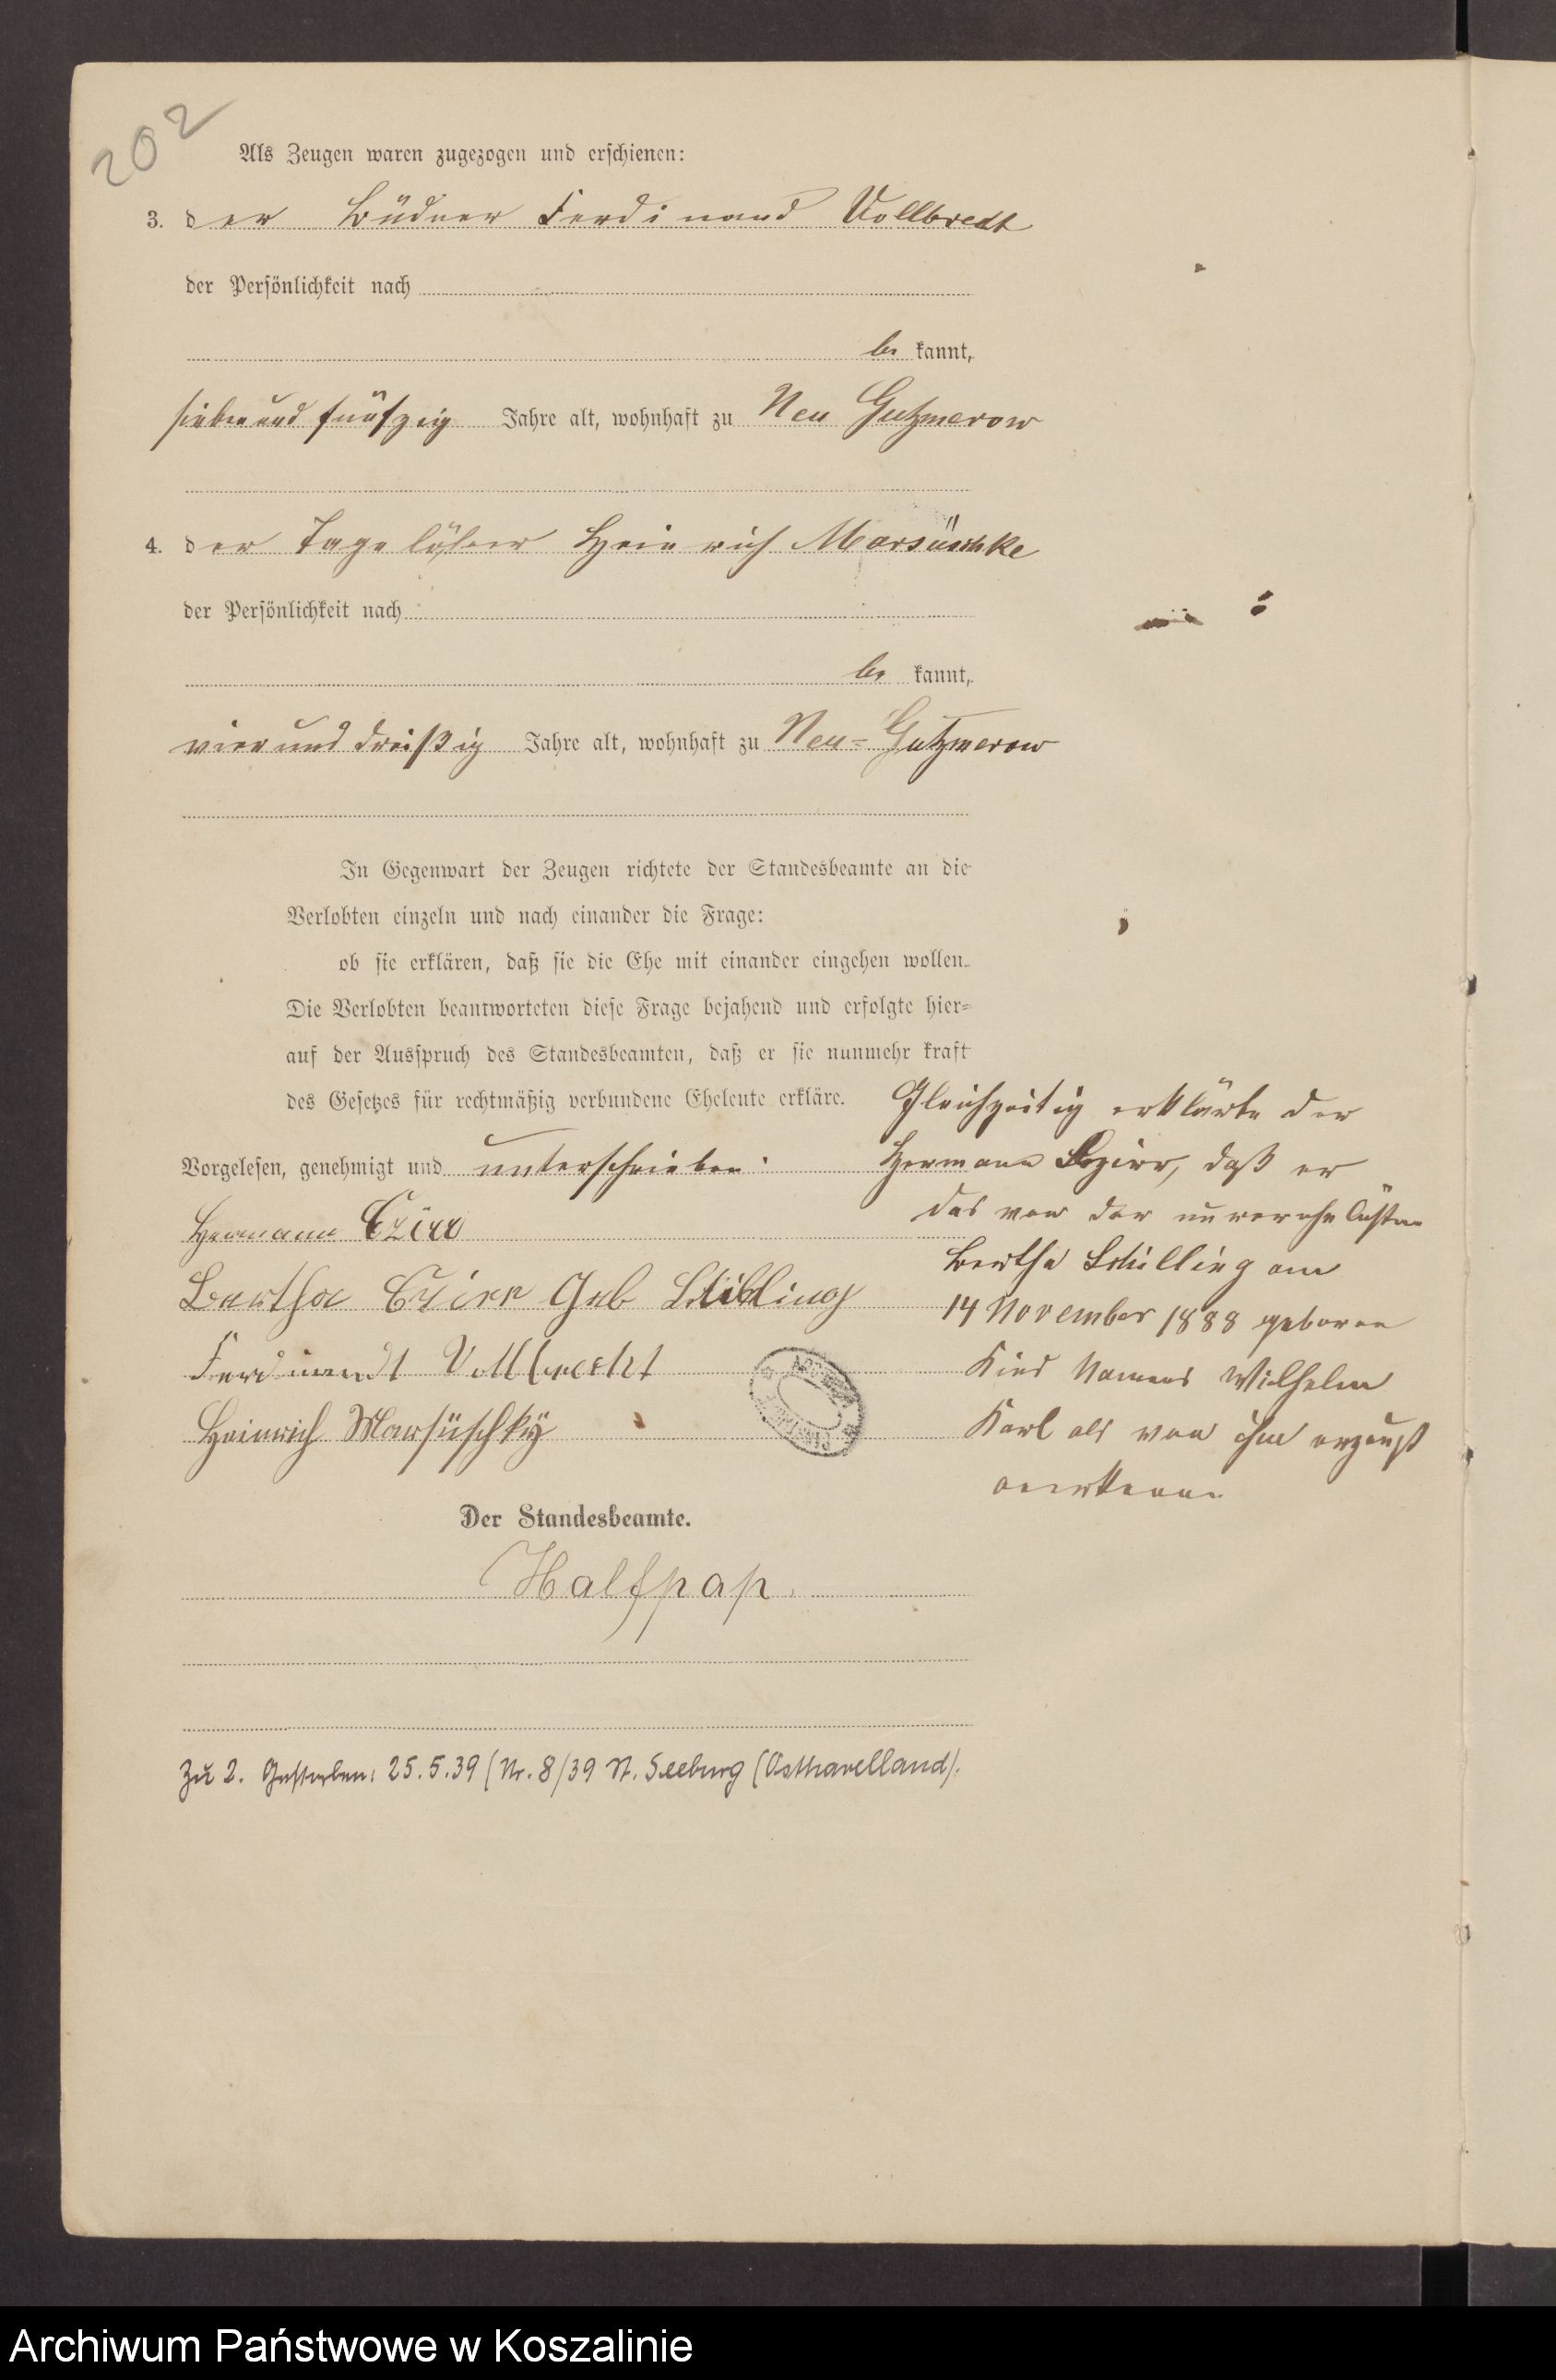 202
Als Zeugen waren zugezogen und erschienen:
3. der Büdner Ferdinand Vollbrecht
der Persönlichkeit nach
be kannt,
siebenundfünfzig Jahre alt, wohnhaft zu Neu Gutzmerow
4. der Tagelöhner Heinrich Marsüschke
der Persönlichkeit nach
be kannt,
vierunddreißig Jahre alt, wohnhaft zu Neu-Gutzmerow
In Gegenwart der Zeugen richtete der Standesbeamte an die
Verlobten einzeln und nach einander die Frage:
ob sie erklären, daß sie die Ehe mit einander eingehen wollen.
Die Verlobten beantworteten diese Frage bejahend und erfolgte hier=
auf der Ausspruch des Standesbeamten, daß er sie nunmehr kraft
des Gesetzes für rechtmäßig verbundene Eheleute erkläre.
Vorgelesen, genehmigt und unterschrieben.
Hermann Czirr
Bertha Czirr Geb
Ferdinandt Vollbrecht
Heinrich Marsüschky
Gleichzeitig erklärte der
Hermann Czirr, daß er
das von der unverehelichten
Bertha am
14 November 1888 geborene
Kind Namens Wilhelm
Karl als von ihm erzeugt
anerkenne
Der Standesbeamte.
Halfpap.
Zu 2. Gestorben: 25.5.39 (Nr. 8/39 St. Seeburg (Osthavelland).
Archiwum Państwowe w Koszalinie